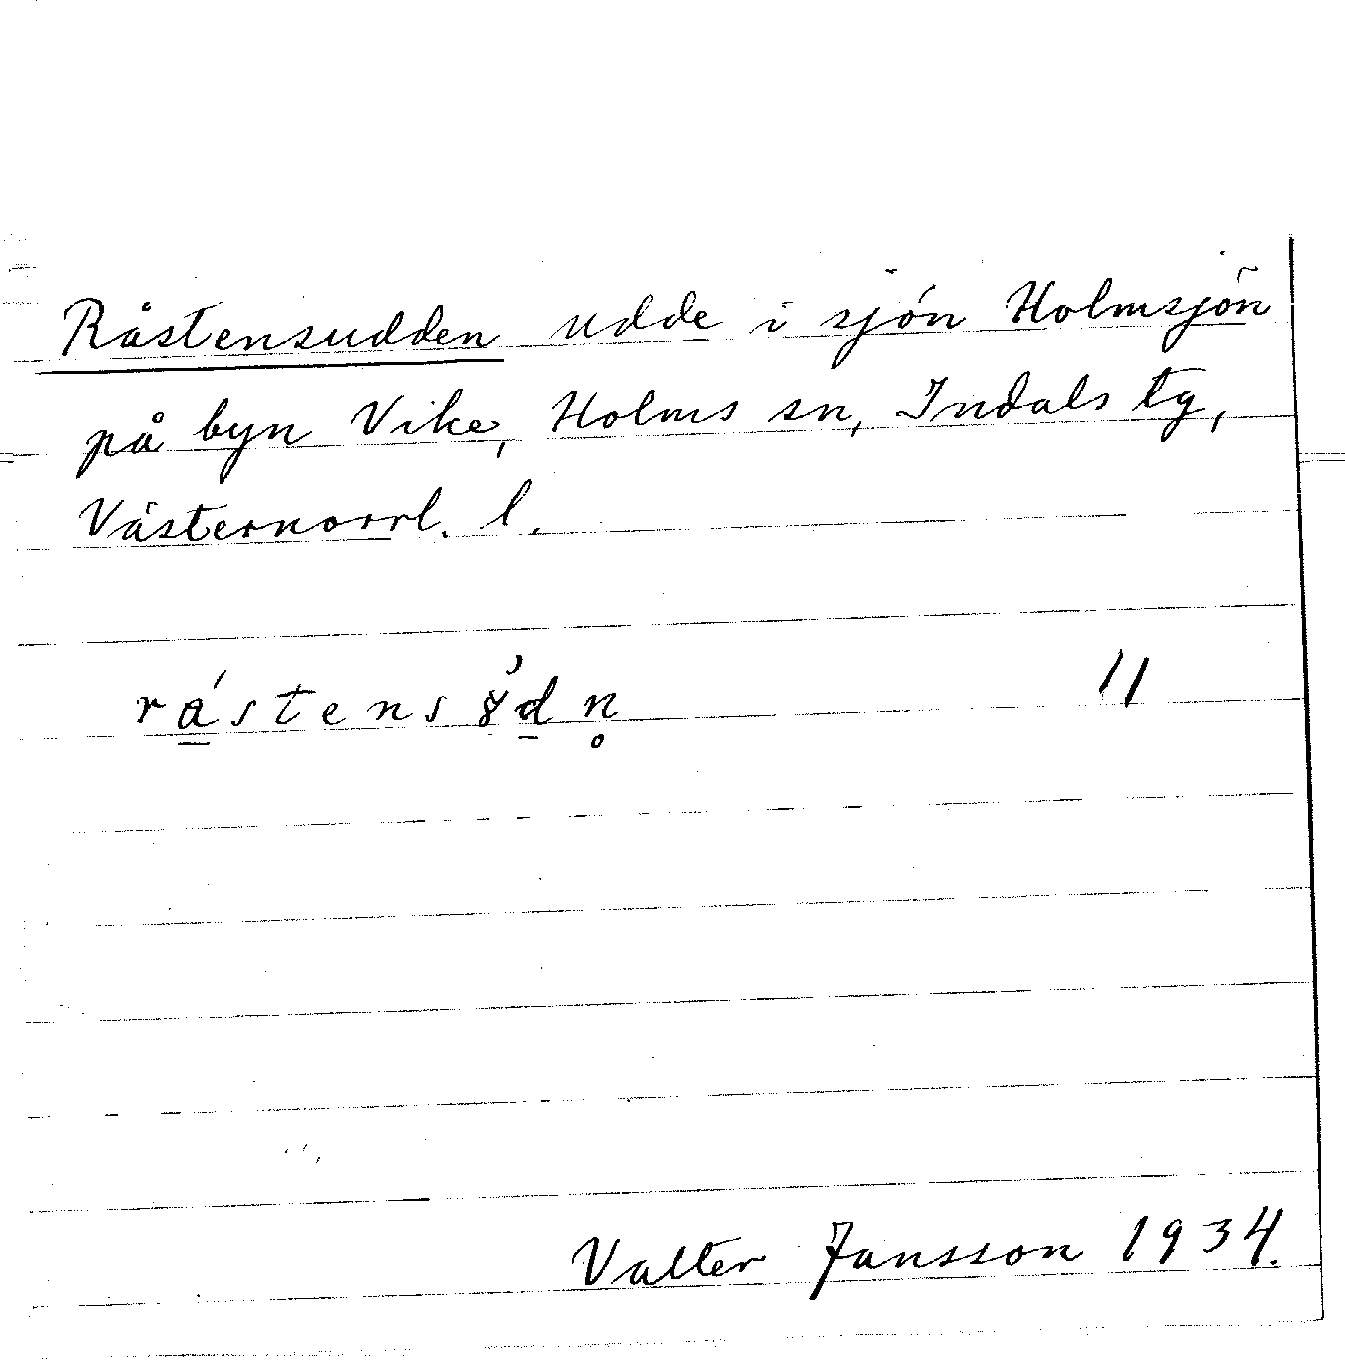 Råstensudden udde i sjön Holmsjön
på byn Vike, Holms sn, Indals tg,
Västernorrl. l.
11
Valter Jansson 1934.